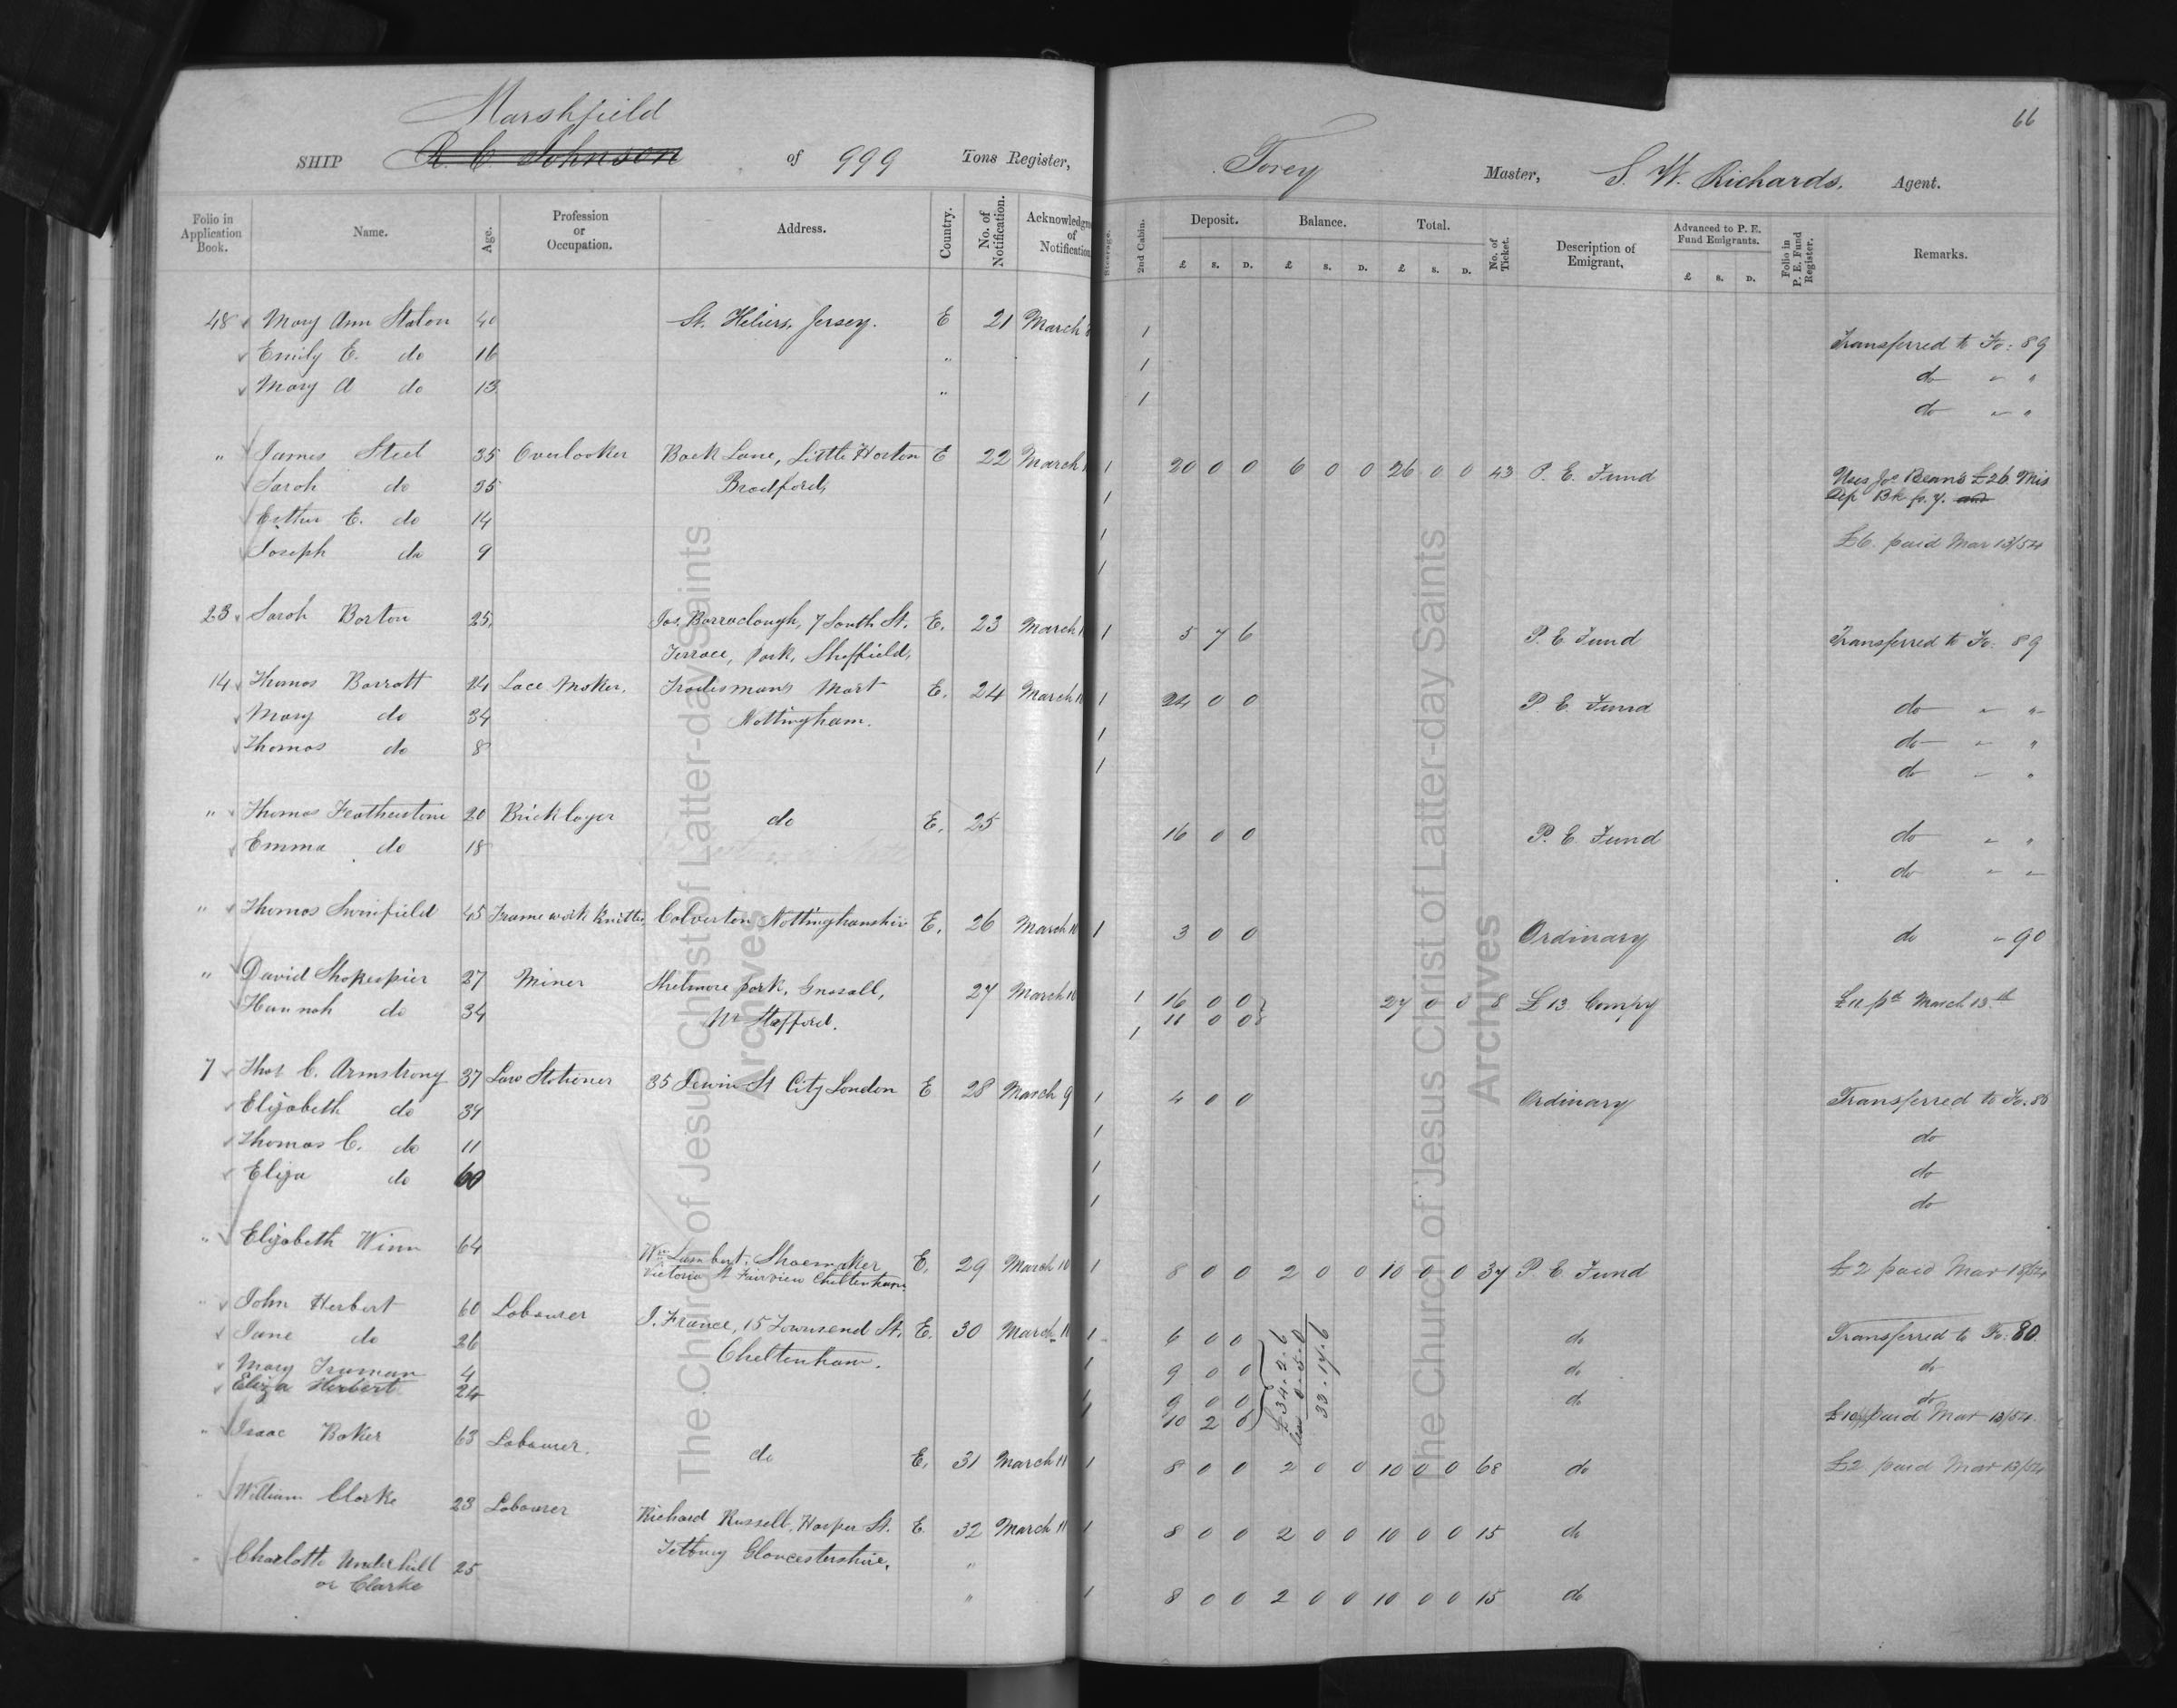 66
Marshfield
SHIP R. C. Johnson of 999 Tons Register, Torey Master, S. W. Richards. Agent.
Folio in Application Book. Name. Age. Profession or Occupation. Address. Country. No. of Notification. Acknowledgm of Notification Steerage. 2nd Cabin. Deposit. £ s. D. Balance. £ s. D. Total. £ s. D. No. of Ticket. Description of Emigrant, Advanced to P. E. Fund Emigrants. £ s. D. Folio in P. E. Fund Register. Remarks.
48 Mary Ann Staton 40 St. Heliers, Jersey. E 21 March 1 Transferred to Fo: 89
Emily E. do 16 " 1 do " "
Mary A do 13 " 1 do " "
" James Steel 35 Overlooker Back Lane, Little Horton E 22 March 1 20 0 0 6 0 0 26 0 0 43 P. E. Fund Uses Jos Beans £26 Mis
Sarah do 35 Bradford, 1 Dep Bk fo. 7.
Esther E. do 14 1
Joseph do 9 1 £6. paid Mar 13/54
23. Sarah Barton 25, Jos. Barraclough, 7 South St. E. 23 March 1 5 7 6 P. E. Fund Transferred to Fo: 89
Terrace, Park, Sheffield,
14 Thomas Barratt 24 Lace Maker. Tradesmans Mart E. 24 March 1 24 0 0 P. E. Fund do " "
Mary do 34 Nottingham. 1 do " "
Thomas do 8 1 do " "
" Thomas Featherstone 20 Bricklayer do E. 25 16 0 0 P. E. Fund do " "
Emma do 18 do " "
" Thomas Swinfield 45 Framework Knitter, Calverton Nottinghamshire E. 26 March 10 1 3 0 0 Ordinary do " 90
" David Shakespier 27 Miner Shelmore park, Gnosall, 27 March 10 1 16 0 0 27 0 0 8 £13 Compy £11 pd March 13th
Hannah do 34 Nr Stafford. 1 11 0 0
7 Thos C. Armstrong 37 Law Stationer 35 Dewin St City London E 28 March 9 1 4 0 0 Ordinary Transferred to Fo. 86
Elizabeth do 34 1 do
Thomas C. do 11 1 do
Eliza do 60 1 do
" Elizabeth Winn 64 Wm Lambert, Shoemaker E. 29 March 10 1 8 0 0 2 0 0 10 0 0 37 P. E. Fund £2 paid Mar 13/54
Victoria St Fairview Cheltenham.
" John Herbert 60 Labourer J. France, 15 Townsend St. E. 30 March 11 1 6 0 0 £34.2.6 do Transferred to Fo: 80.
Jane do 26 Cheltenham. 1 9 0 0 less 0.5.0 do do
Mary Truman 4 9 0 0 33.17.6 do do
Eliza Herbert 24 1 10 2 6 £10 paid Mar 13/54.
" Isaac Baker 63 Labourer. do E. 31 March 11 1 8 0 0 2 0 0 10 0 0 68 do £2 paid Mar 13/54
" William Clarke 23 Labourer Richard Russell, Harper St. E. 32 March 11 1 8 0 0 2 0 0 10 0 0 15 do
Tetbury Gloucestershire. "
" Charlotte Underhill 25 " 1 8 0 0 2 0 0 10 0 0 15 do
or Clarke
The Church of Jesus Christ of Latter-day Saints
Archives
The Church of Jesus Christ of Latter-day Saints
Archives